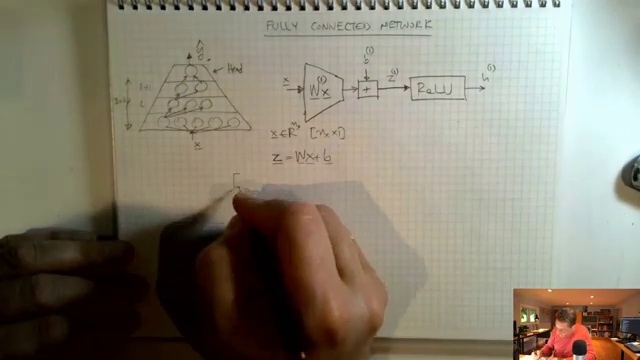 FULLY CONNECTED NETWORK
ŷ
Head
L+1
L
x
x
Wx
b
+
z
ReLU
h
x ∈ R [n x 1]
z = Wx + b